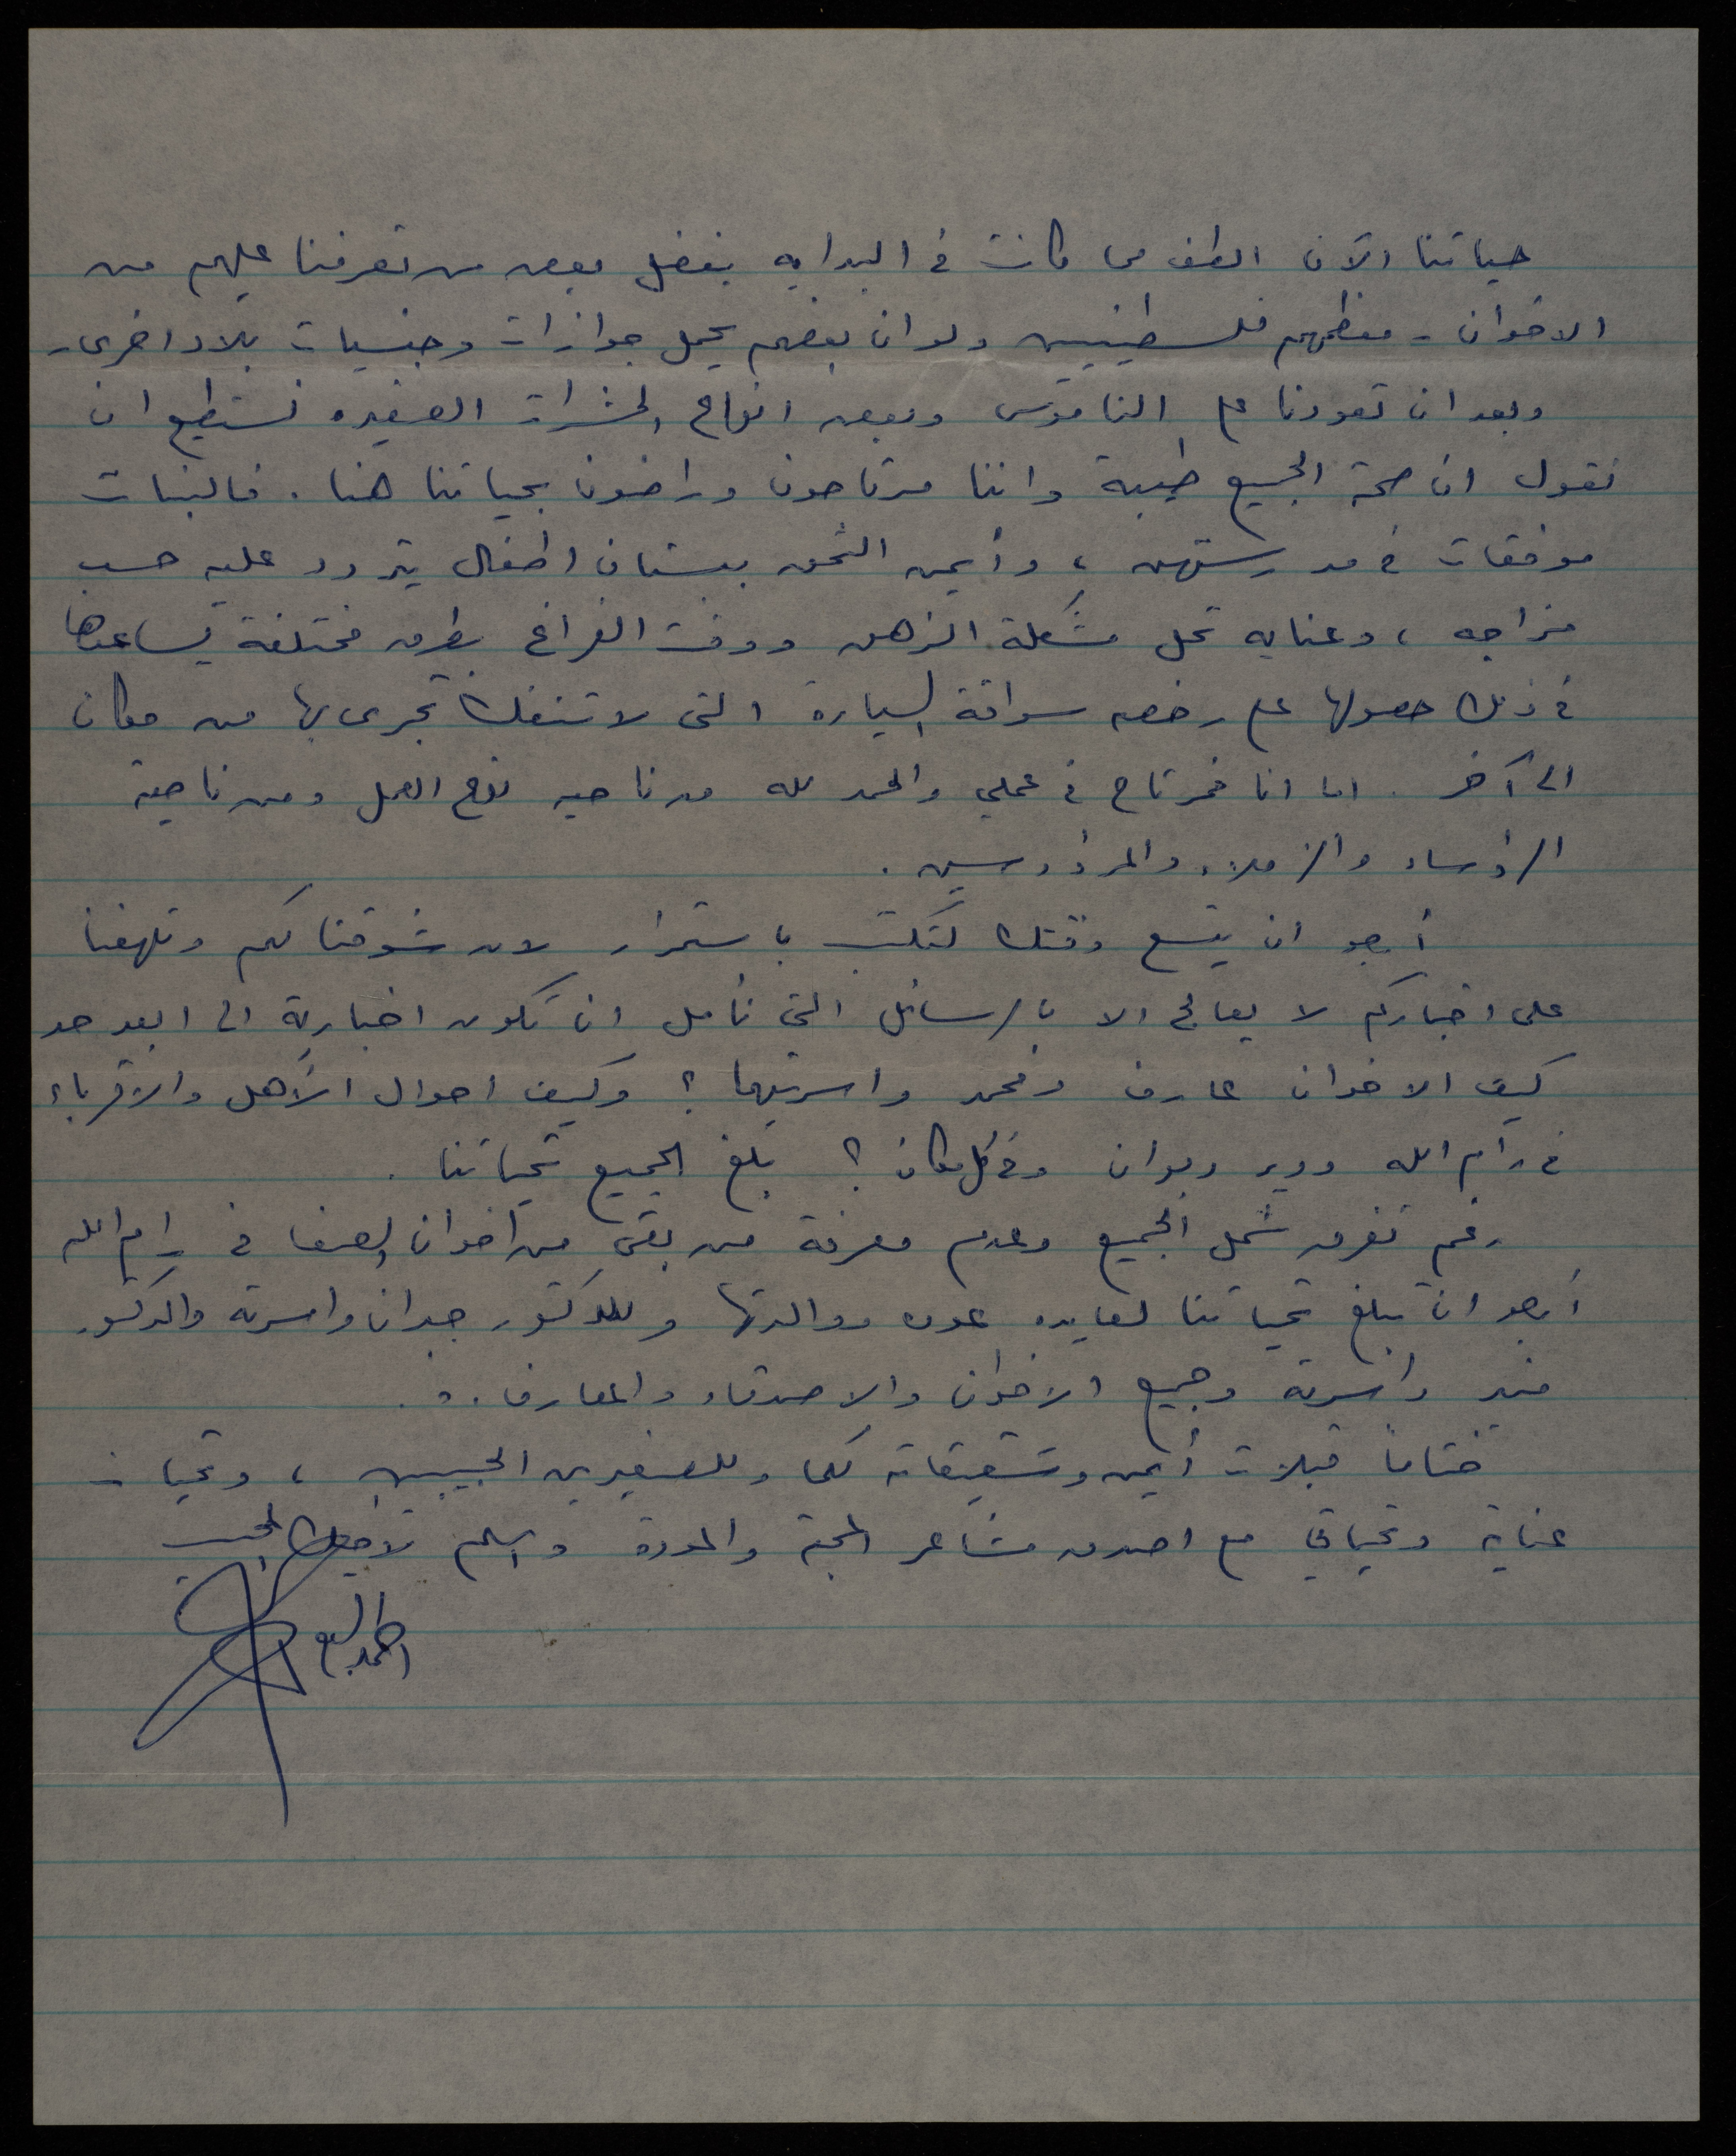 حياتنا الآن الطف مما كانت في البدايه بفضل بعض من تعرفنا عليهم من
الاخوان - معظمهم فلسطينيين ولو ان بعضهم يحمل جوازات وجنسيات بلاد اخرى -
وبعد ان تعودنا على الناموس وبعض انواع الحشرات الصغيره نستطيع ان
نقول ان صحة الجميع طيبة واننا مرتاحون وراضون بحياتنا هنا . فالبنات
موفقات في مدرستهن ، وأيمن التحق ببستان اطفال يتردد عليه حسب
مزاجه ، وعنايه تحل مشكلة الزهق ووقت الفراغ بطرق مختلفة يساعدها
في ذلك حصولها على رخصه سواقة السيارة التي لا تنفك تجري بها من مكان
الى آخر . اما انا فمرتاح في عملي والحمد لله من ناحيه نوع العمل ومن ناحية
الرؤساء والزملاء والمرؤوسين .
أرجو ان يتسع وقتك لتكتب باستمرار لان شوقنا لكم وتلهفنا
على اخباركم لا يعالج الا بالرسائل التي نأمل ان تكون اخبارية الى ابعد حد
كيف الاخوان عارف ومحمد واسرتيهما ؟ وكيف احوال الأهل والاقرباء
في رام الله ودير دبوان وفي كل مكان ؟ بلغ الجميع تحياتنا .
رغم تفرق شمل الجميع وعدم معرفة من بقي من اخوان الصفا في رام الله
أرجو ان تبلغ تحياتنا لعايده عوده ووالدتها وللدكتور جبران واسرته والدكتور
منير واسرته وجميع الاخوان والاصدقاء والمعارف . .
ختاماً قبلات أيمن وشقيقاته لكما وللصغيرين الحبيبين ، وتحيات
عناية وتحياتي مع اصدق مشاعر المحبة والمودة واسلم لاخيك المحب
احمد السبع